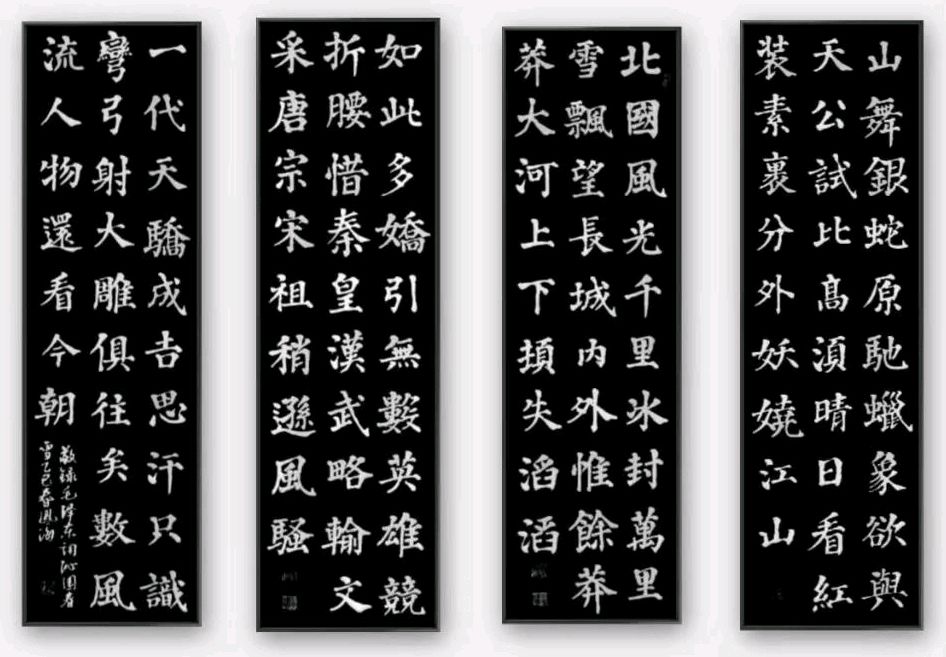 北國風光千里冰封萬里
雪飄望長城內外惟餘莽
莽大河上下頓失滔滔
山舞銀蛇原馳蠟象欲與
天公試比高須晴日看紅
装素裹分外妖嬈江山
如此多嬌引無數英雄競
折腰惜秦皇漢武略輸文
采唐宗宋祖稍遜風騷
一代天驕成吉思汗只識
彎弓射大雕俱往矣數風
流人物還看今朝
敬錄毛泽东词沁园春
雪乙巳春